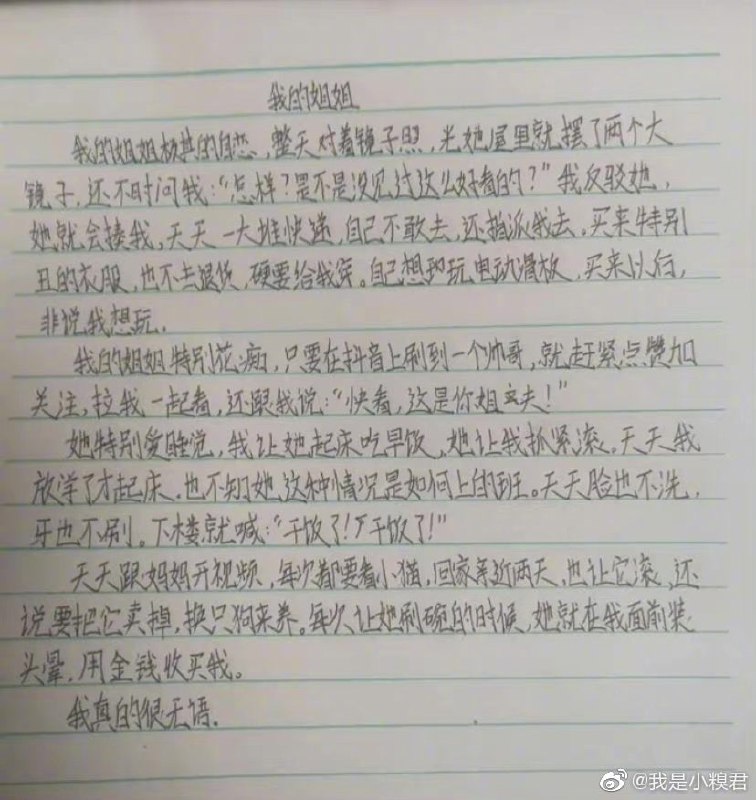 我的姐姐
我的姐姐极其的自恋，整天对着镜子照，光她屋里就摆了两个大
镜子，还不时问我：“怎样？是不是没见过这么好看的？”我反驳她，
她就会揍我，天天一大堆快递，自己不敢去，还指派我去。买来特别
丑的衣服，也不去退货，硬要给我穿。自己想玩电动滑板，买来以后，
非说我想玩．
我的姐姐特别花痴，只要在抖音上刷到一个帅哥，就赶紧点赞加
关注，拉我一起看，还跟我说：“快看，这是你姐夫！”
她特别爱睡觉，我让她起床吃早饭，她让我抓紧滚。天天我
放学了才起床．也不知她这种情况是如何上的班。天天脸也不洗，
牙也不刷。下楼就喊：“干饭了！”“干饭了！”
天天跟妈妈开视频，每次都要看小猫，回家亲近两天，也让它滚，还
说要把它卖掉，换只狗来养。每次让她刷碗的时候，她就在我面前装
头晕，用金钱收买我。
我真的很无语．
@我是小糗君